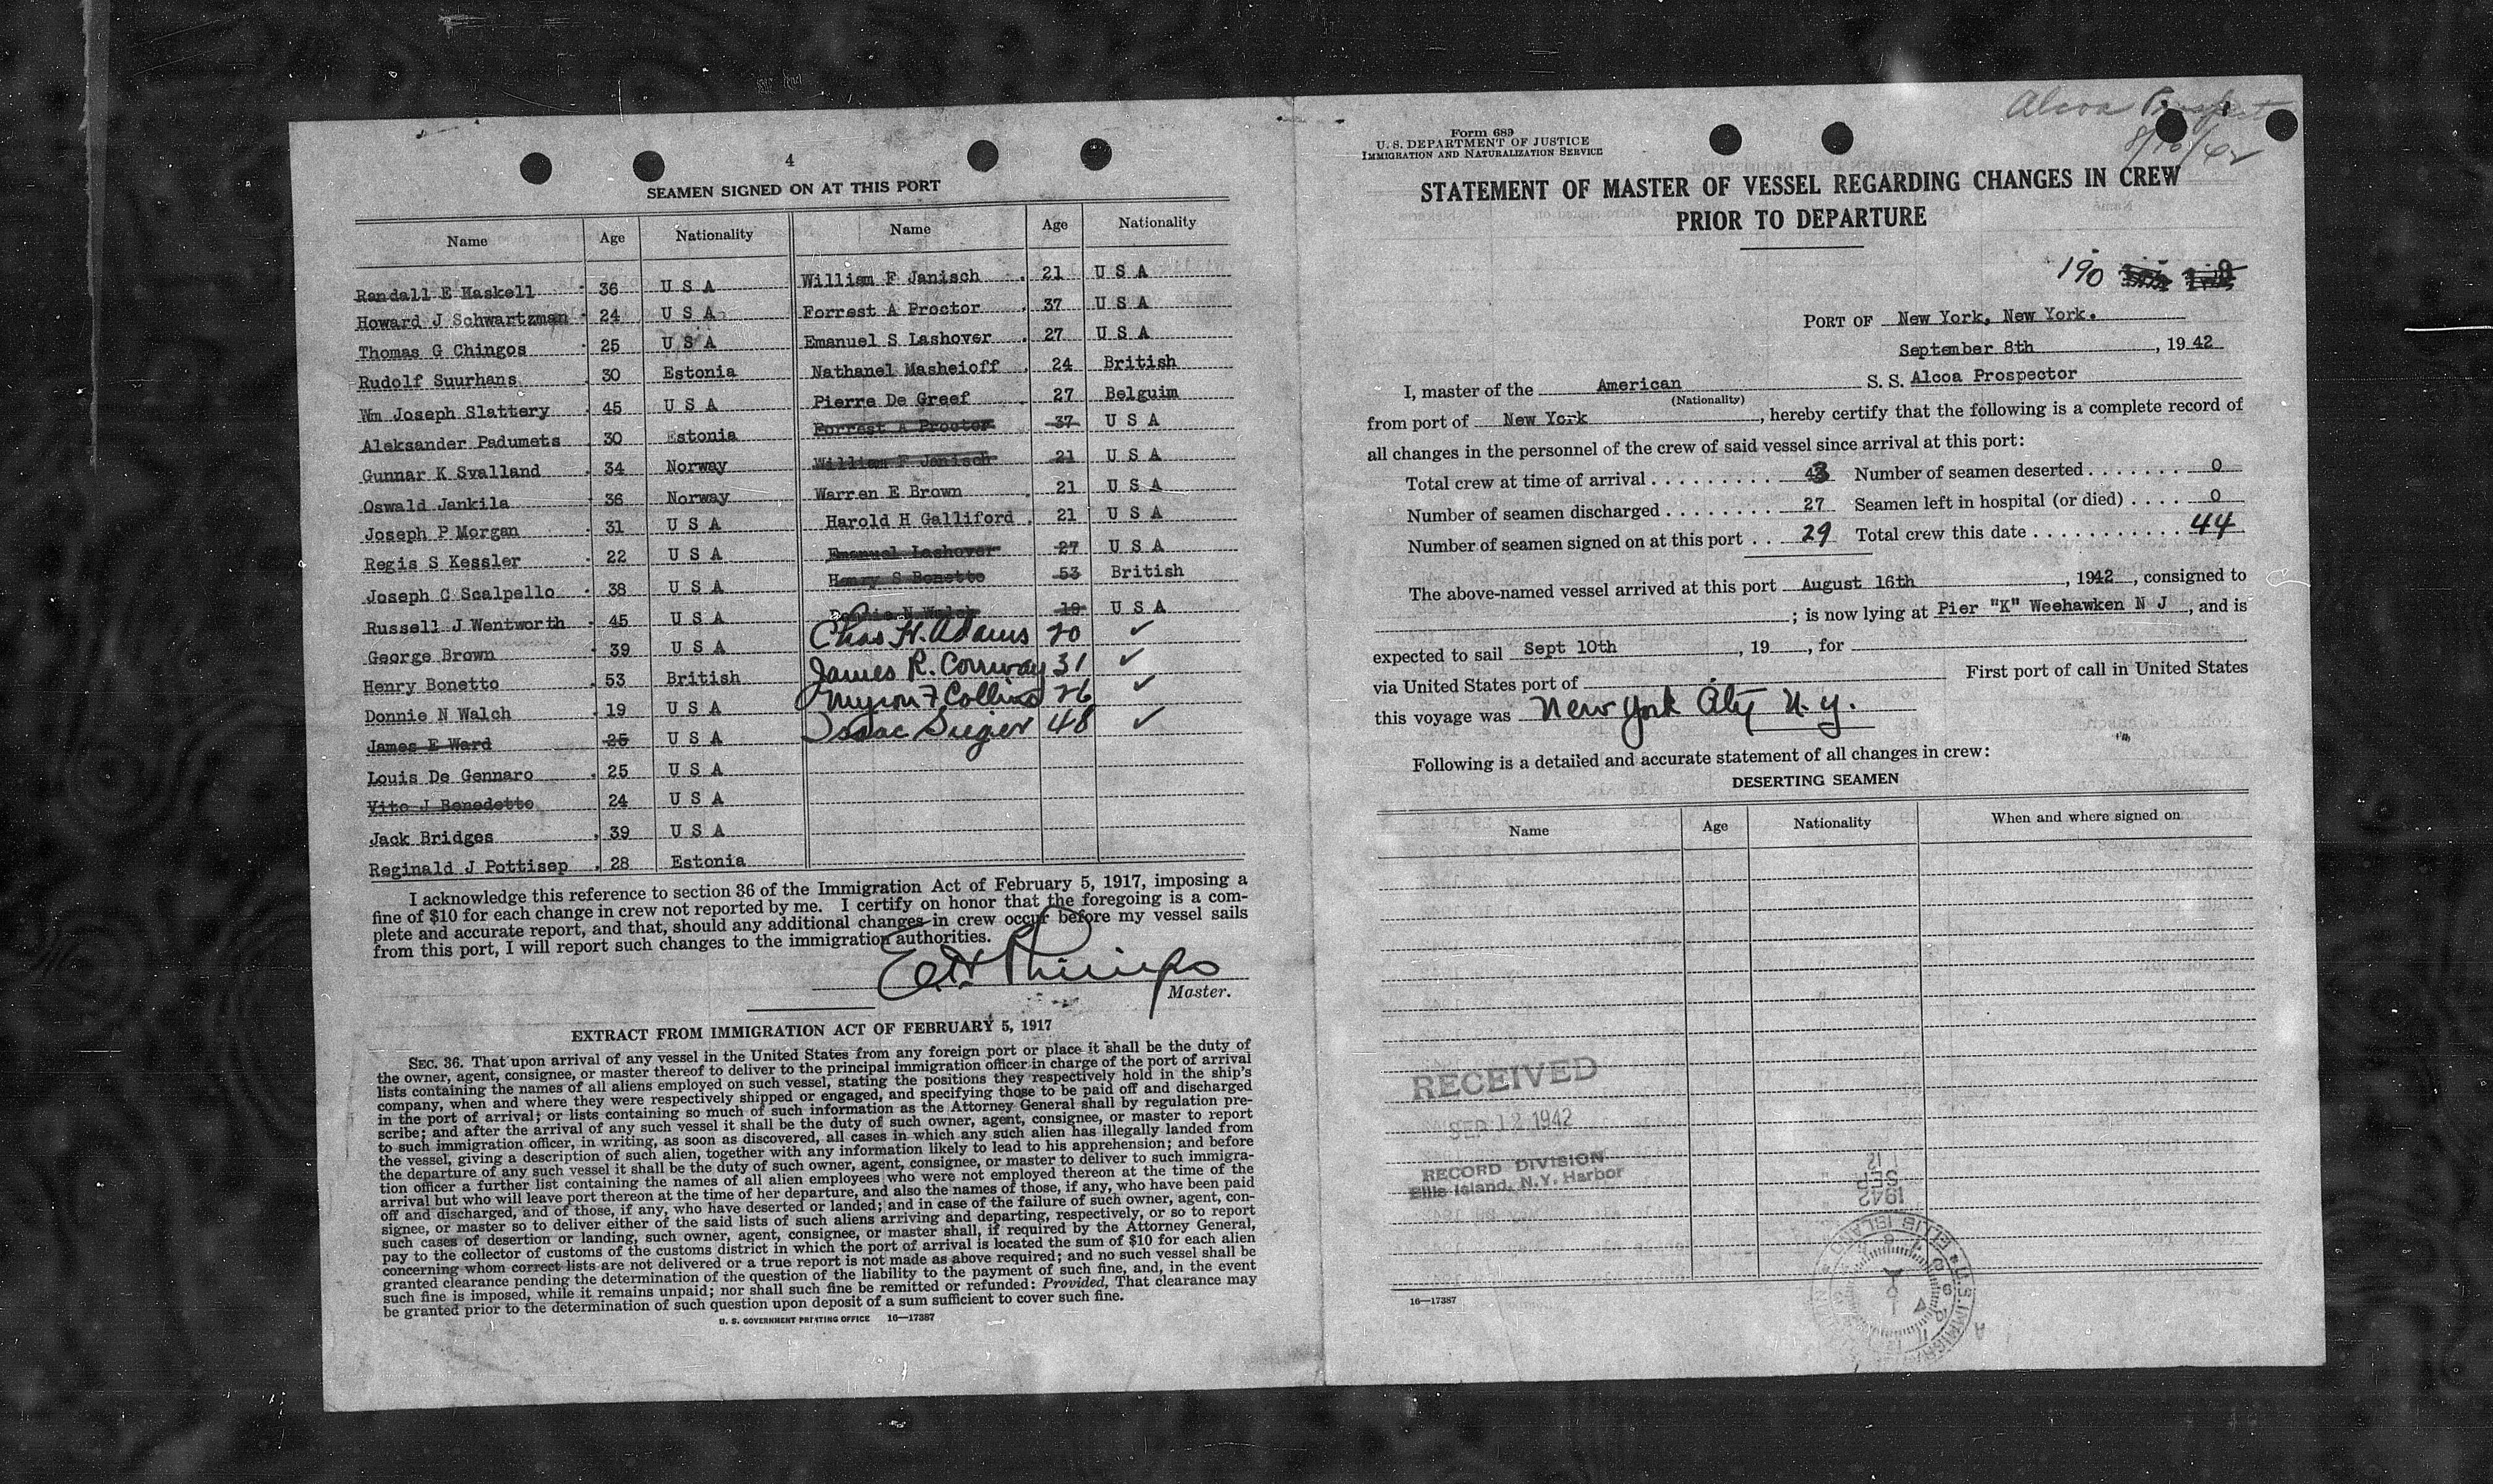 4
SEAMEN SIGNED ON AT THIS PORT
Name Age Nationality Name Age Nationality
Randall E Haskell 36 U S A William F Janisch 21 U S A
Howard J Schwartzman 24 U S A Forrest A Proctor 37 U S A
Thomas G Chingos 25 U S A Emanuel S Lashover 27 U S A
Rudolf Suurhans 30 Estonia Nathanel Masheioff 24 British
Wm Joseph Slattery 45 U S A Pierre De Greef 27 Belguim
Aleksander Padumets 30 Estonia Forrest A Proctor 37 U S A
Gunnar K Svalland 34 Norway William F Janisch 21 U S A
Oswald Jankila 36 Norway Warren E Brown 21 U S A
Joseph P Morgan 31 U S A Harold H Galliford 21 U S A
Regis S Kessler 22 U S A Emanuel Lashover 27 U S A
Joseph C Scalpello 38 U S A Henry S Bonetto 53 British
Russell J Wentworth 45 U S A Donnie N Walch 19 U S A
George Brown 39 U S A Chas H. Adams 20 ✓
Henry Bonetto 53 British James R. Conway 31 ✓
Donnie N Walch 19 U S A Myron F Collins 26 ✓
James E Ward 25 U S A Isaac 48 ✓
Louis De Gennaro 25 U S A
Vito J Benedetto 24 U S A
Jack Bridges 39 U S A
Reginald J Pottisep 28 Estonia
I acknowledge this reference to section 36 of the Immigration Act of February 5, 1917, imposing a
fine of $10 for each change in crew not reported by me. I certify on honor that the foregoing is a com-
plete and accurate report, and that, should any additional changes in crew occur before my vessel sails
from this port, I will report such changes to the immigration authorities.
E H Phillips
Master.
EXTRACT FROM IMMIGRATION ACT OF FEBRUARY 5, 1917
SEC. 36. That upon arrival of any vessel in the United States from any foreign port or place it shall be the duty of
the owner, agent, consignee, or master thereof to deliver to the principal immigration officer in charge of the port of arrival
lists containing the names of all aliens employed on such vessel, stating the positions they respectively hold in the ship's
company, when and where they were respectively shipped or engaged, and specifying those to be paid off and discharged
in the port of arrival; or lists containing so much of such information as the Attorney General shall by regulation pre-
scribe; and after the arrival of any such vessel it shall be the duty of such owner, agent, consignee, or master to report
to such immigration officer, in writing, as soon as discovered, all cases in which any such alien has illegally landed from
the vessel, giving a description of such alien, together with any information likely to lead to his apprehension; and before
the departure of any such vessel it shall be the duty of such owner, agent, consignee, or master to deliver to such immigra-
tion officer a further list containing the names of all alien employees who were not employed thereon at the time of the
arrival but who will leave port thereon at the time of her departure, and also the names of those, if any, who have been paid
off and discharged, and of those, if any, who have deserted or landed; and in case of the failure of such owner, agent, con-
signee, or master so to deliver either of the said lists of such aliens arriving and departing, respectively, or so to report
such cases of desertion or landing, such owner, agent, consignee, or master shall, if required by the Attorney General,
pay to the collector of customs of the customs district in which the port of arrival is located the sum of $10 for each alien
concerning whom correct lists are not delivered or a true report is not made as above required; and no such vessel shall be
granted clearance pending the determination of the question of the liability to the payment of such fine, and, in the event
such fine is imposed, while it remains unpaid; nor shall such fine be remitted or refunded: Provided, That clearance may
be granted prior to the determination of such question upon deposit of a sum sufficient to cover such fine.
U. S. GOVERNMENT PRINTING OFFICE 16—17387
Alcoa Prospect
8/16/42
Form 689
U. S. DEPARTMENT OF JUSTICE
IMMIGRATION AND NATURALIZATION SERVICE
STATEMENT OF MASTER OF VESSEL REGARDING CHANGES IN CREW
PRIOR TO DEPARTURE
190
PORT OF New York, New York.
September 8th, 1942
I, master of the American S. S. Alcoa Prospector
(Nationality)
from port of New York, hereby certify that the following is a complete record of
all changes in the personnel of the crew of said vessel since arrival at this port:
Total crew at time of arrival . . . . . . . . . 43 Number of seamen deserted . . . . . . . 0
Number of seamen discharged . . . . . . . . 27 Seamen left in hospital (or died) . . . . 0
Number of seamen signed on at this port . . 29 Total crew this date . . . . . . . . . . . . 44
The above-named vessel arrived at this port August 16th, 1942, consigned to
; is now lying at Pier "K" Weehawken N J, and is
expected to sail Sept 10th, 19, for
via United States port of First port of call in United States
this voyage was New York City N.Y.
Following is a detailed and accurate statement of all changes in crew:
DESERTING SEAMEN
Name Age Nationality When and where signed on
RECEIVED
SEP 12 1942
RECORD DIVISION
Ellis Island, N.Y. Harbor
12
SEP
1942
16—17387